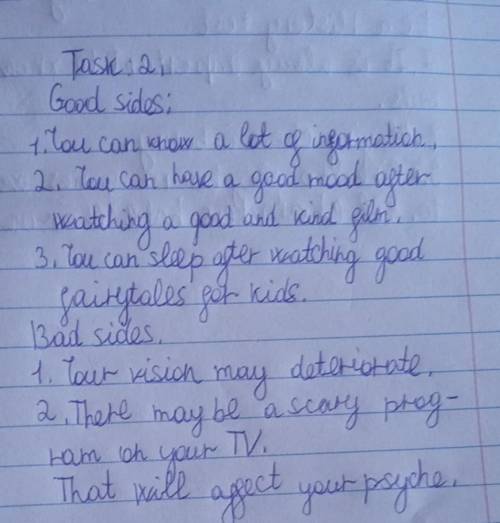 Task: 2.
Good sides:
1. You can know a lot of information.
2. You can have a good mood after
watching a good and kind film.
3. You can sleep after watching good
fairytales for kids.
Bad sides.
1. Your vision may deteriorate.
2. There may be a scary prog-
ram on your TV.
That will affect your psyche.